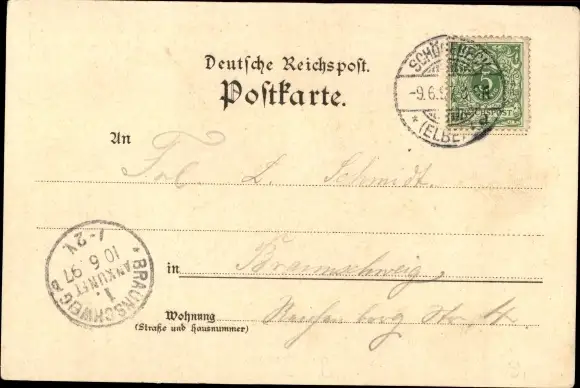 Deutsche Reichspost.
Postkarte.
SCHÖNEBECK
-9.6.9
* (ELBE)
5
An
Frl. L. Schmidt.
in Braunschweig,
Wohnung
(Straße und Hausnummer)
Str. 4.
* BRAUNSCHWEIG *
1.
ANKUNFT
10 6 97
1-2V.